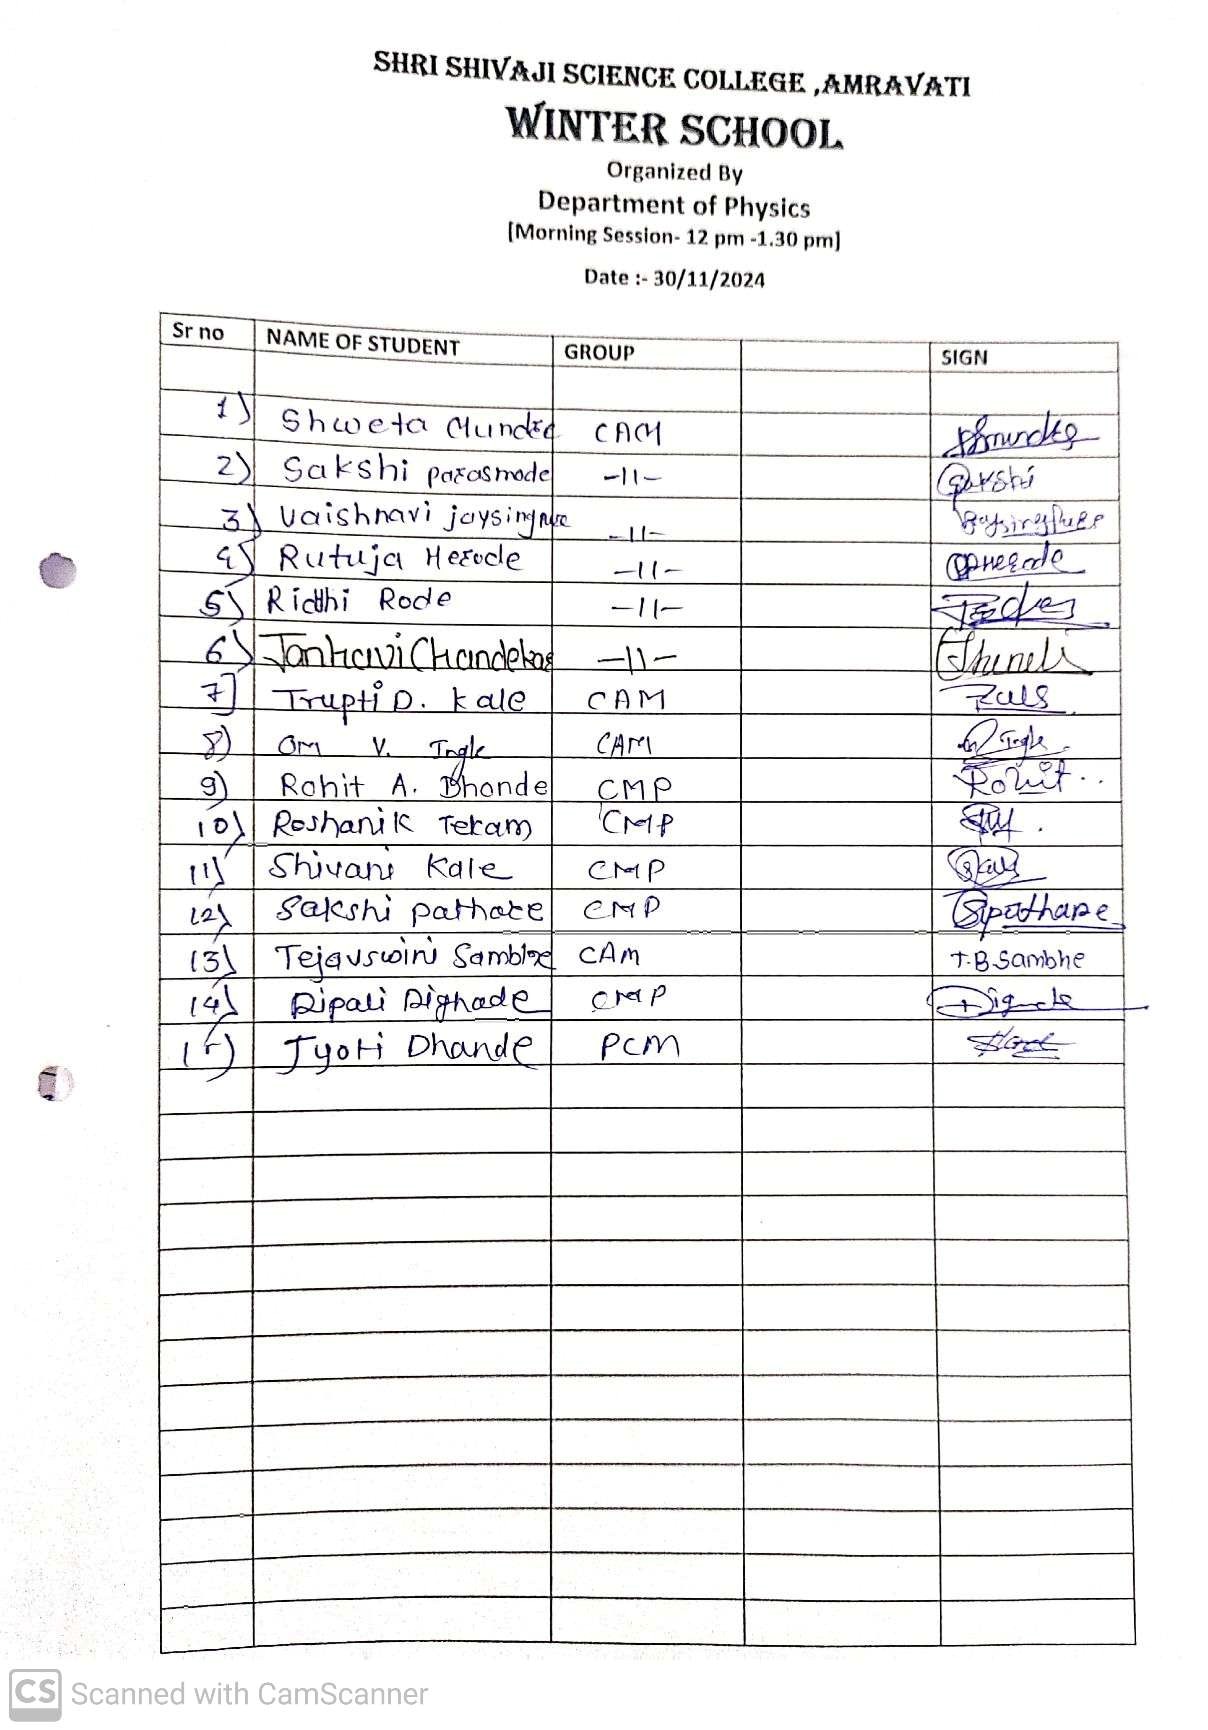 SHRI SHIVAJI SCIENCE COLLEGE ,AMRAVATI
WINTER SCHOOL
Organized By
Department of Physics
[Morning Session- 12 pm -1.30 pm]
Date :- 30/11/2024
Sr no NAME OF STUDENT GROUP SIGN
1) Shweta CAM
2) Sakshi -11- Sakshi
3) Vaishnavi -11-
4) Rutuja Herode -11-
5) Riddhi Rode -11-
6) Janhavi Chandekar -11-
7] Trupti D. Kale CAM
8) Om V. Ingle CAM Ingle
9) Rohit A. Bhonde CMP Rohit
10) Roshani K Tekam CMP
11) Shivani Kale CMP
12) Sakshi pathare CMP Spathare
13) Tejauswini Sambhe CAM T.B.Sambhe
14) Dipali Dighade CMP
15) Jyoti Dhande PCM
CS Scanned with CamScanner